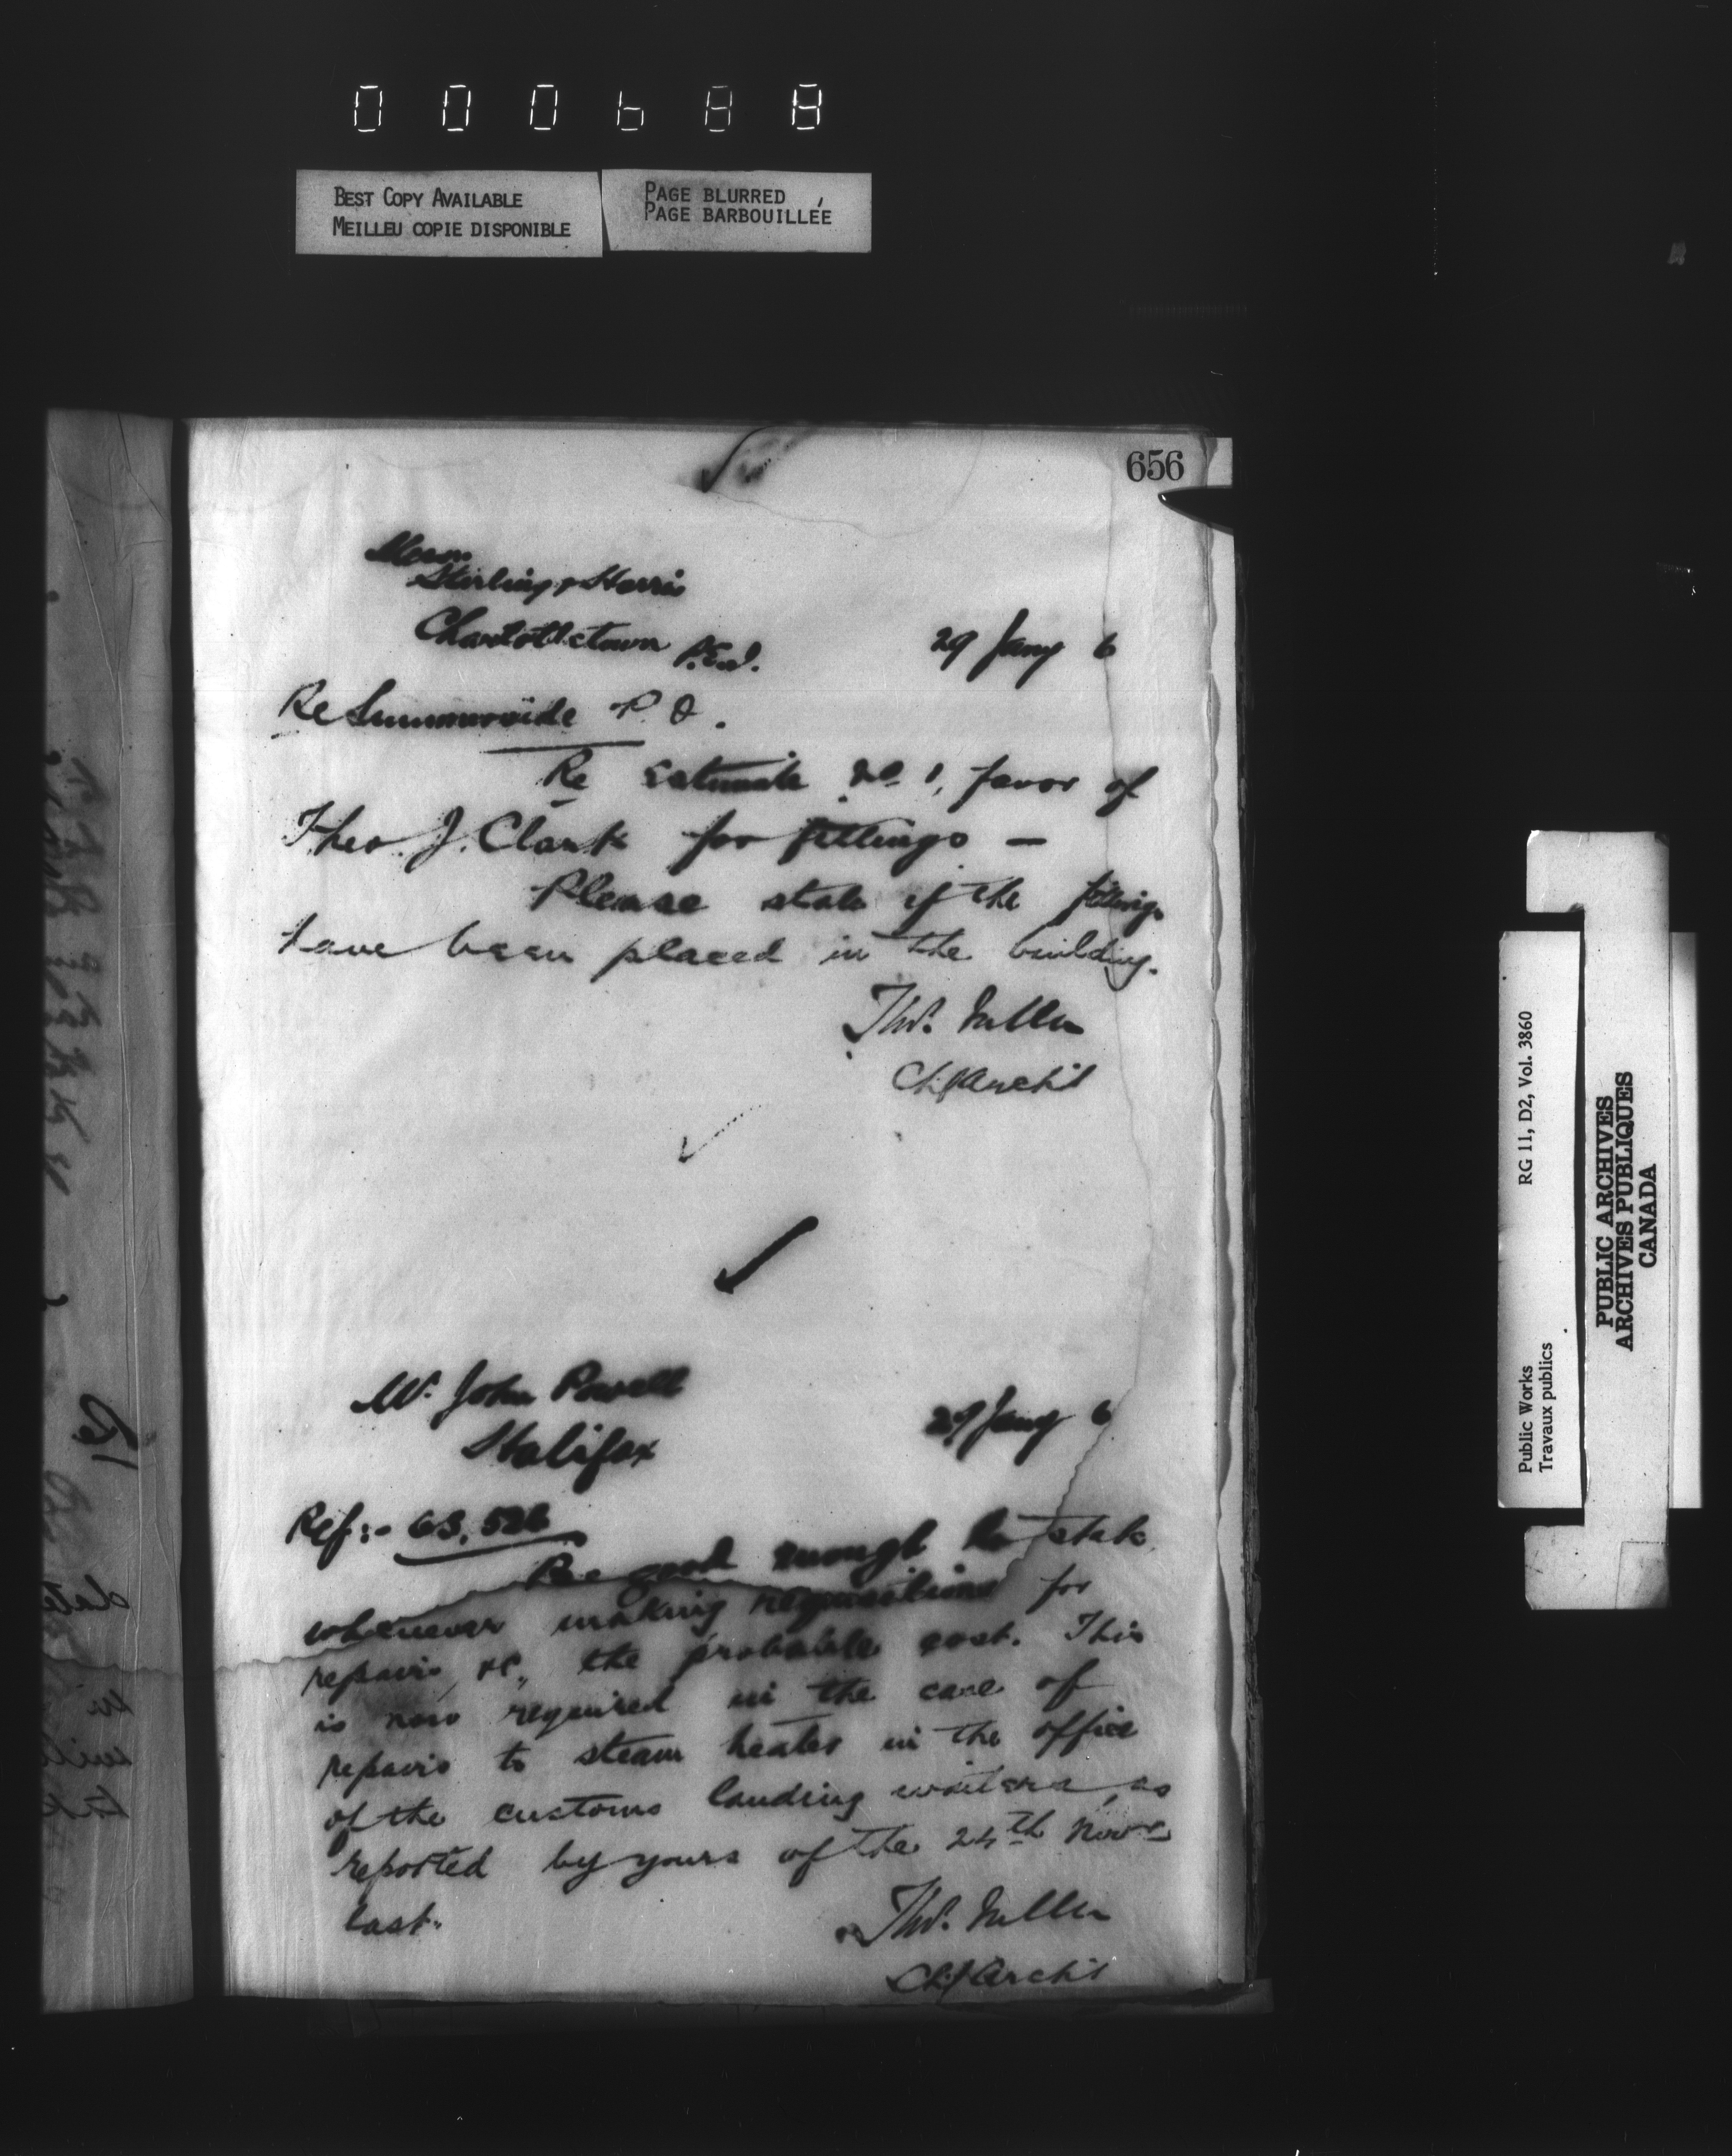 000688
BEST COPY AVAILABLE
MEILLEU COPIE DISPONIBLE
PAGE BLURRED
PAGE BARBOUILLÉE
656
Messrs
Sterling & Harris
Charlottetown P.E.I.
29 Jany 6
Re Summerside P.O.
Re Estimate No 1, favor of
Theo. J. Clark for fittings —
Please state if the fittings
have been placed in the building.
Thos. Fuller
Chf Archt
Mr. John Powell
Halifax
29 Jany 6
Ref:- 63,526
Be good enough to state
whenever making requisitions for
repairs &c., the probable cost. This
is now required in the case of
repairs to steam heater in the office
of the customs landing waiters, as
reported by yours of the 24th Novr
last.
Thos. Fuller
Chf Archt
Public Works
Travaux publics
RG 11, D2, Vol. 3860
PUBLIC ARCHIVES
ARCHIVES PUBLIQUES
CANADA